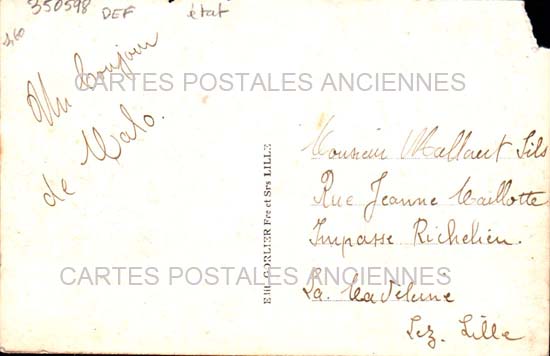 350598 DEF état
Un bonjour
de Malo.
CARTES POSTALES ANCIENNES
Edit GORLIER Fre et Srs LILLE
Monsieur Mallaert Fils
Rue Jeanne Maillotte
Impasse Richelieu.
CARTES POSTALES ANCIENNES
La Madeleine
Lez. Lille